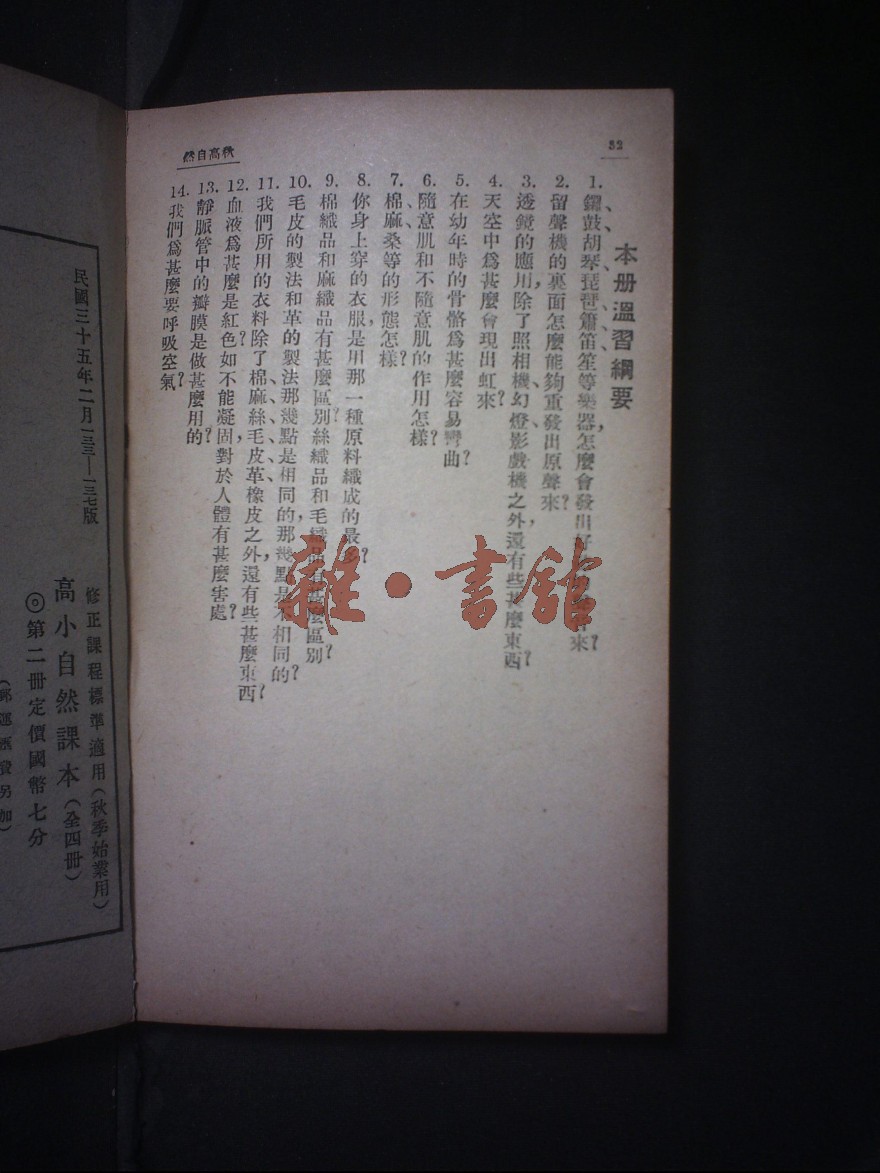 32
秋高自然
本册溫習綱要
1. 鑼、鼓、胡琴、琵琶、簫、笛、笙等樂器，怎麼會發出好
來？
2. 留聲機的裏面怎麼能夠重發出原聲來？
3. 透鏡的應用，除了照相機、幻燈、影戲機之外，還有些甚麼東西？
4. 天空中爲甚麼會現出虹來？
5. 在幼年時的骨骼爲甚麼容易彎曲？
6. 隨意肌和不隨意肌的作用怎樣？
7. 棉、麻、桑等的形態怎樣？
8. 你身上穿的衣服，是用那一種原料織成的最多？
9. 棉織品和麻織品有甚麼區別？絲織品和毛織品有甚麼區別？
10. 毛皮的製法和革的製法，那幾點是相同的，那幾點是不相同的？
11. 我們所用的衣料除了棉、麻、絲、毛、皮、革、橡皮之外，還有些甚麼東西？
12. 血液爲甚麼是紅色？如不能凝固，對於人體有甚麼害處？
13. 靜脈管中的瓣膜是做甚麼用的？
14. 我們爲甚麼要呼吸空氣？
雜·書館
民國三十五年二月一三三—一三七版
修正課程標準適用（秋季始業用）
高小自然課本（全四冊）
◎第二冊定價國幣七分
（郵運匯費另加）